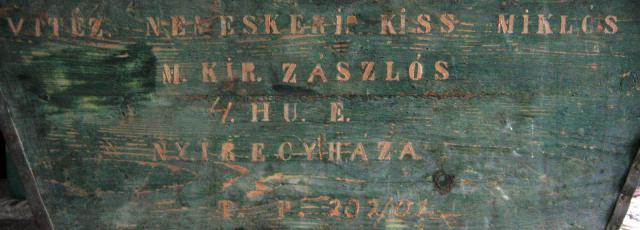 VITÉZ. NEMESKÉRI. KISS MIKLÓS
M. KIR. ZÁSZLÓS
4. HU. E.
NYIREGYHÁZA
P. P. 202/02